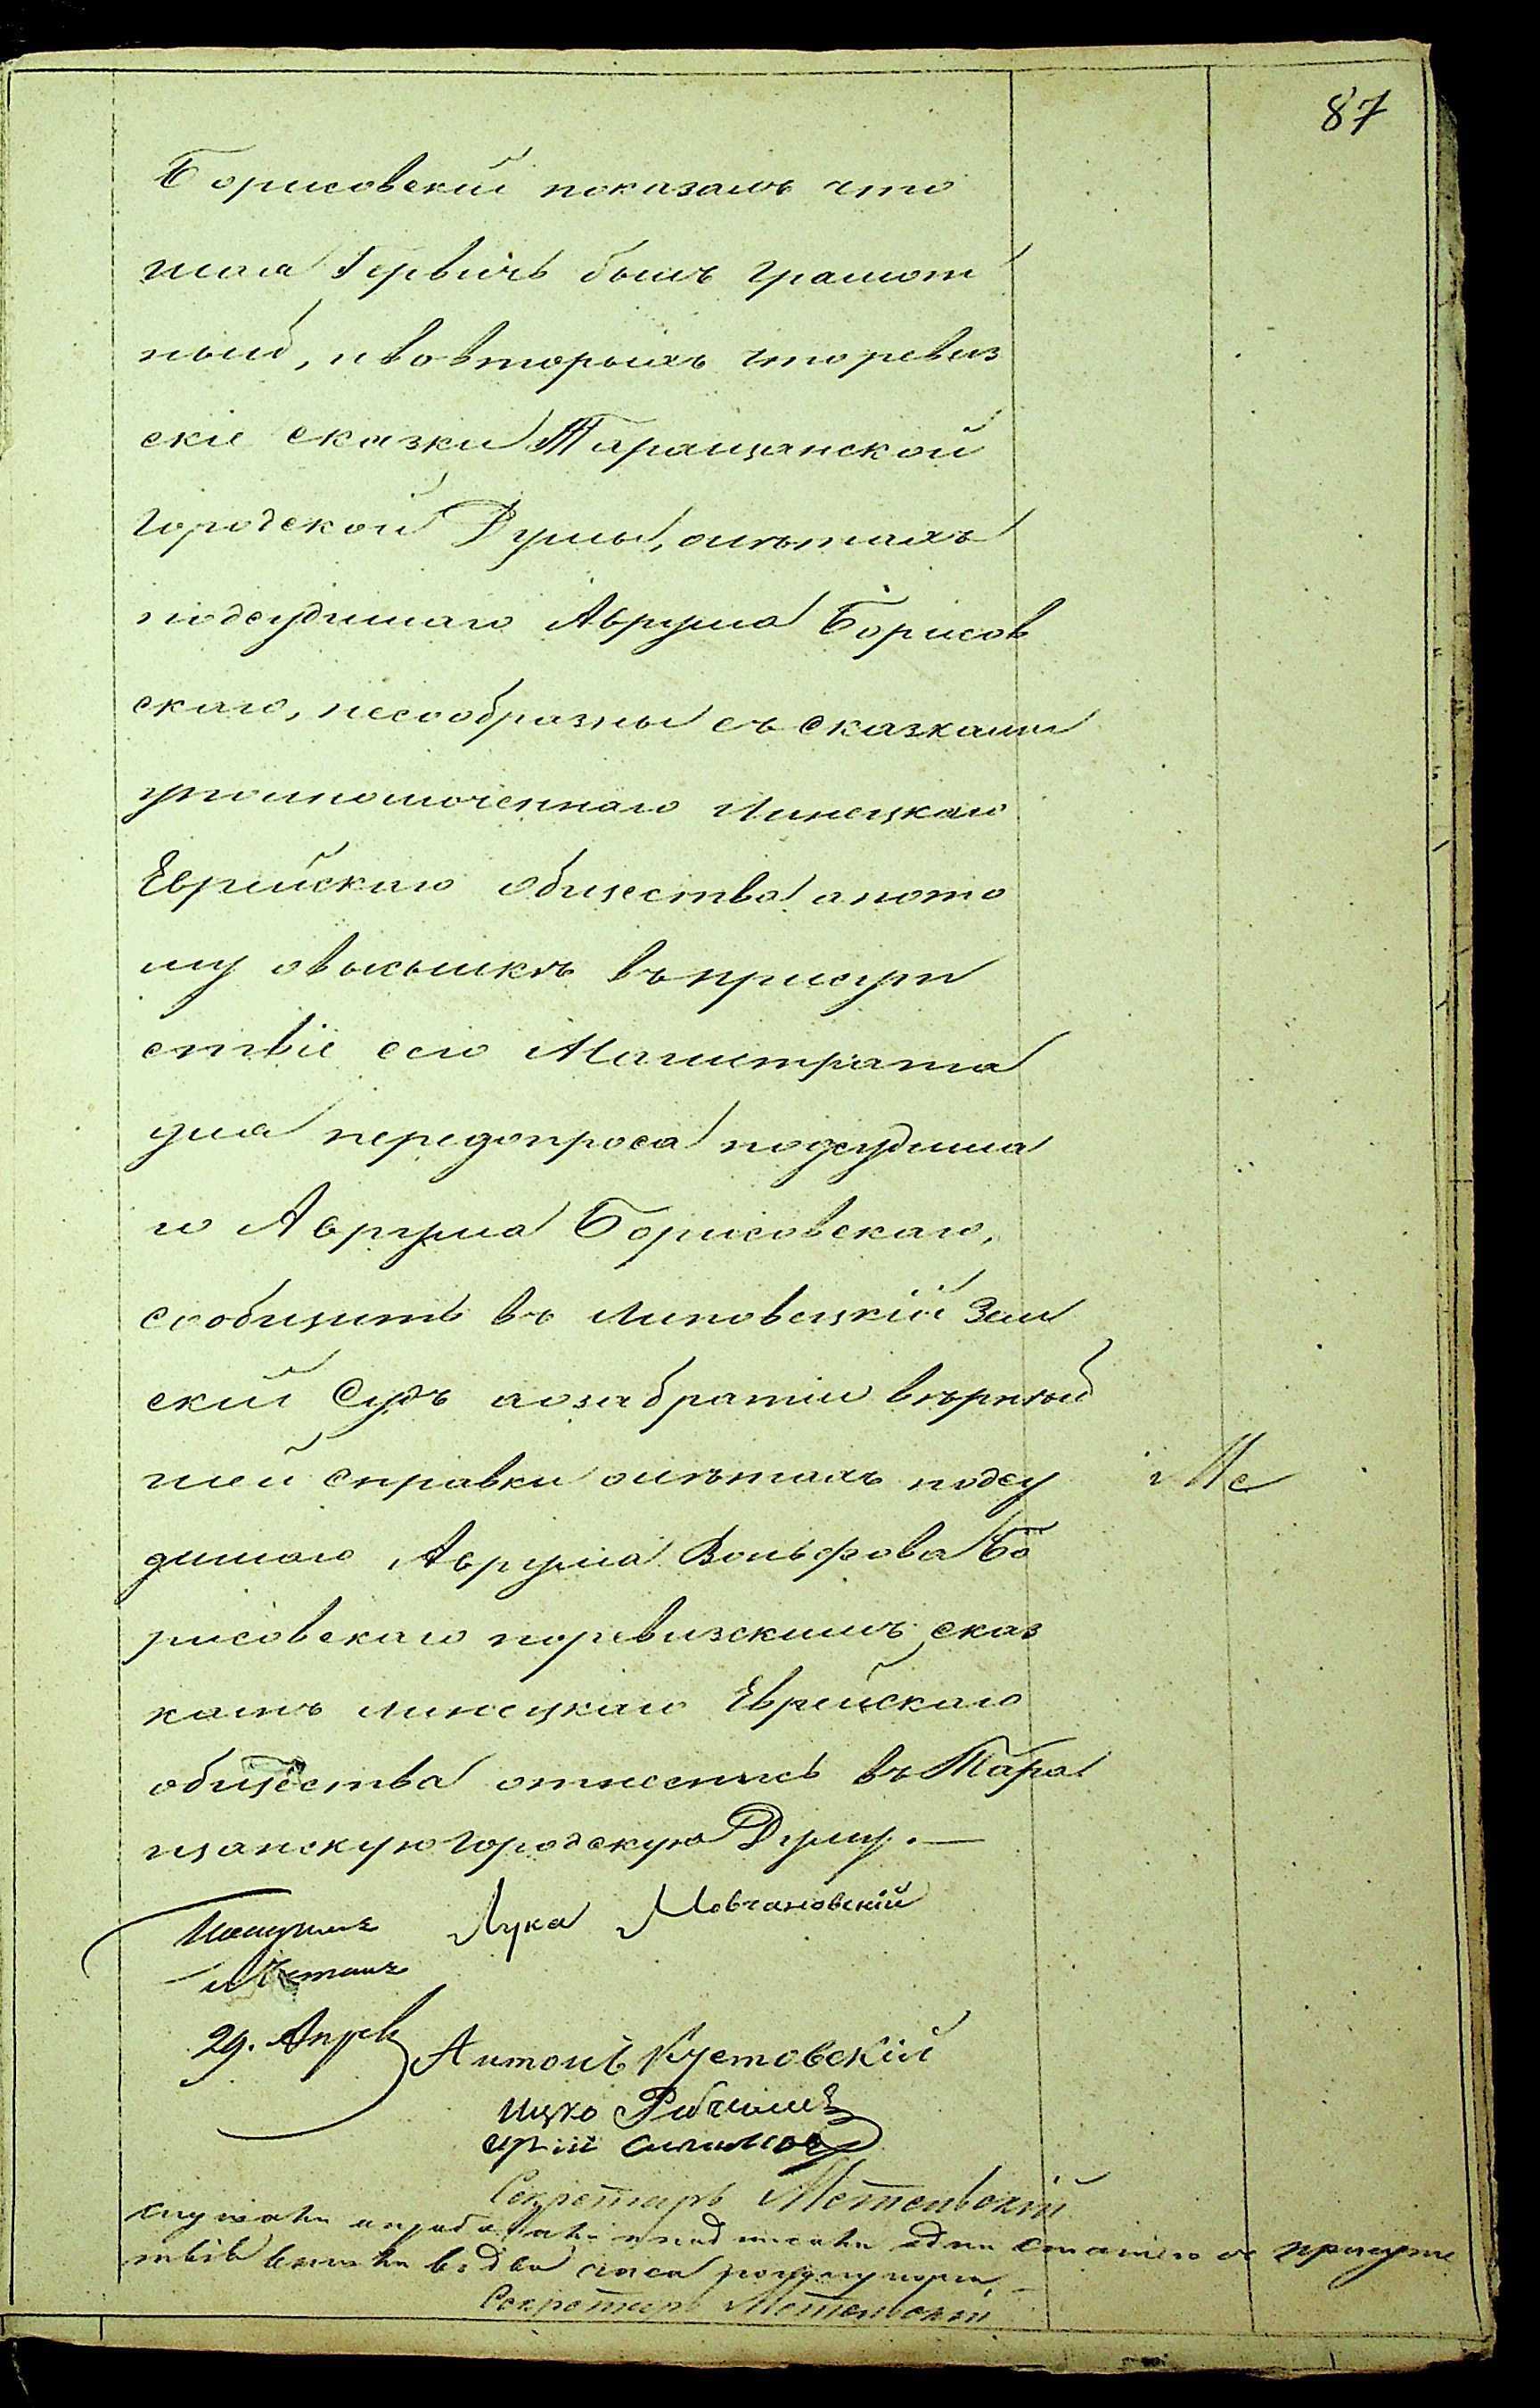 87
Борисовский показалъ что
Гервичь былъ грамот
ный, и вовторыхъ что ревиз
скіе сказки Таращанской
городской Думы, олѣтахъ
подсудимаго Аврума Борисов
скаго, несообразны съ сказками
уполномоченнаго Линецкаго
Еврейскаго общества а пото
му овысылкѣ въ присут
ствіе сего Магистрата
для передопроса подсудима
го Аврума Борисовскаго,
сообщить въ Липовецкій Зем
скій Судъ а о забратіи вѣрнѣй
шей справки олѣтахъ подсу
димаго Аврума Вольфова Бо
рисовскаго поревизскимъ сказ
камъ линецкаго Еврейскаго
общества отнестись въ Тара
щанскую городскую Думу. —
Лука Мовчановскій
29. Апрѣ
Антонъ Кустовскій
Ицко
Секретарь
слушали и подписали одни статью о присутс
твіе вышли въ два часа
Секретарь